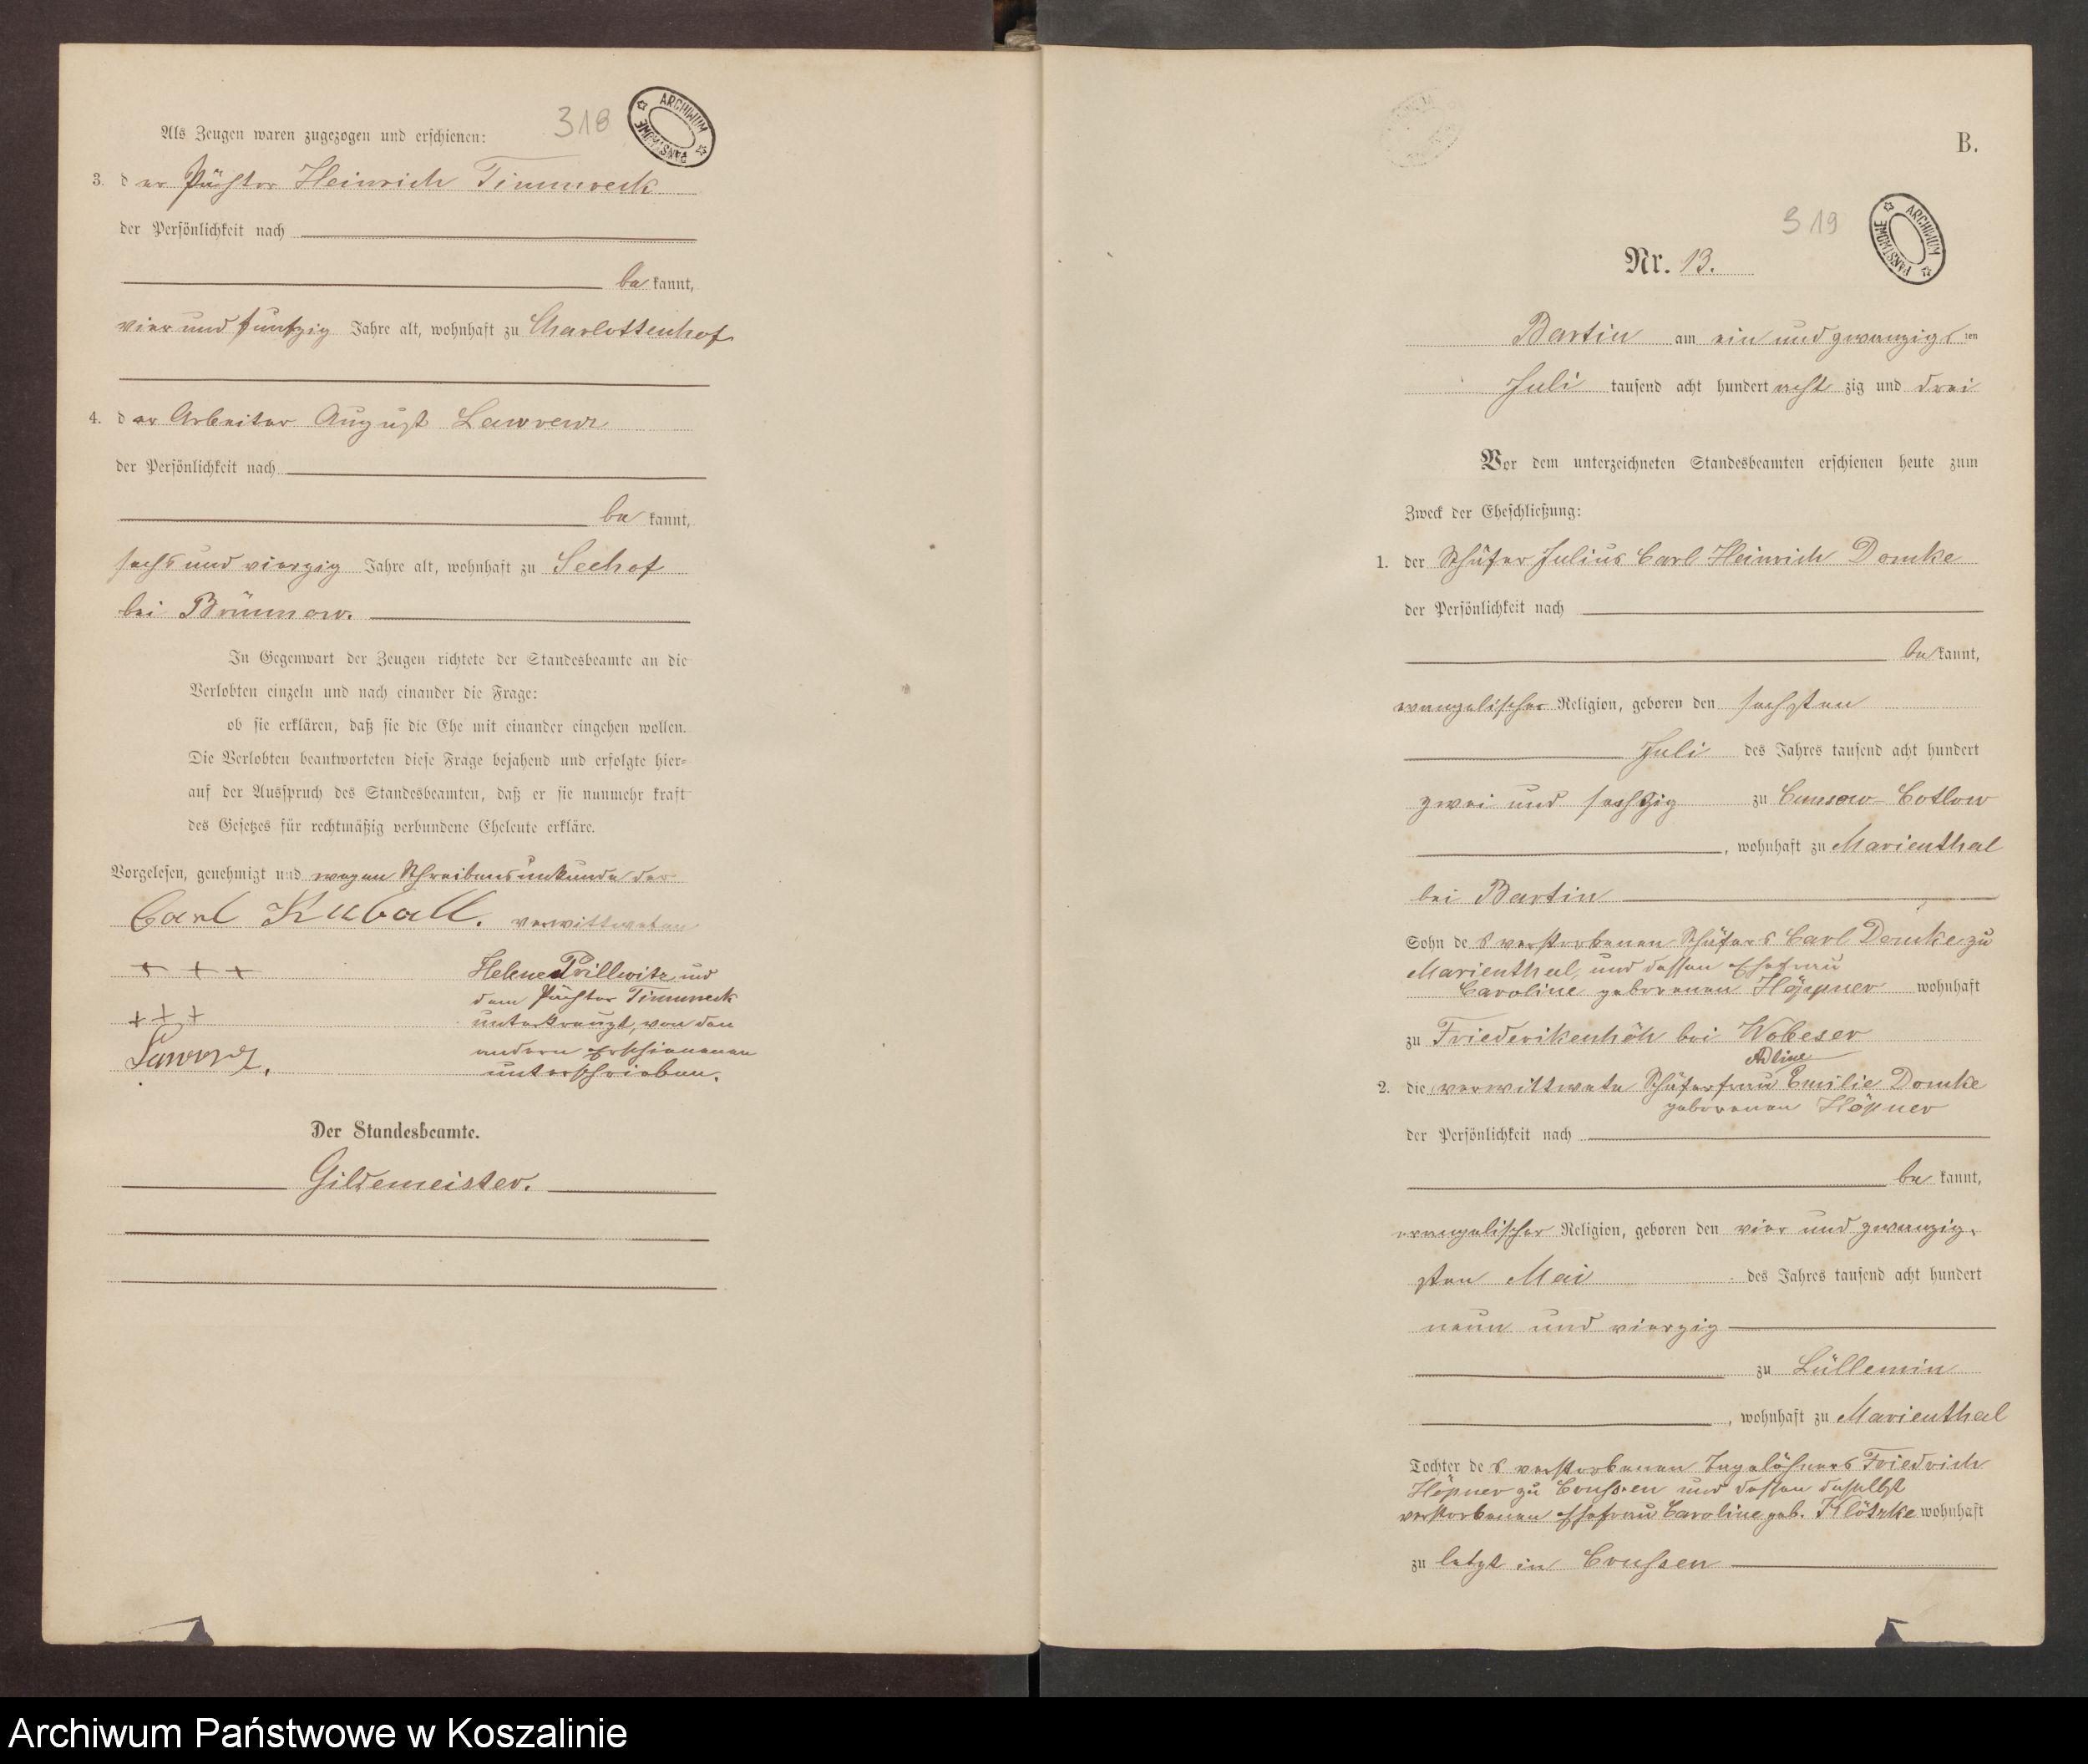 318
ARCHIWUM PAŃSTWOWE
Als Zeugen waren zugezogen und erschienen:
3. der Pächter Heinrich Timmreck
der Persönlichkeit nach
be kannt,
vier und fünfzig Jahre alt, wohnhaft zu Charlottenhof
4. der Arbeiter August Lawrenz
der Persönlichkeit nach
be kannt,
sechs und vierzig Jahre alt, wohnhaft zu Seehof
bei Brünnow.
In Gegenwart der Zeugen richtete der Standesbeamte an die
Verlobten einzeln und nach einander die Frage:
ob sie erklären, daß sie die Ehe mit einander eingehen wollen.
Die Verlobten beantworteten diese Frage bejahend und erfolgte hier-
auf der Ausspruch des Standesbeamten, daß er sie nunmehr kraft
des Gesetzes für rechtmäßig verbundene Eheleute erkläre.
Vorgelesen, genehmigt und wegen Schreibensunkunde der
Carl Kuball. verwittweten
+ + + Helene Prillwitz und
dem Pächter Timmreck
+ + + unterkreuzt, von den
Lawrenz. andern Erschienenen
unterschrieben.
Der Standesbeamte.
Gildemeister.
B.
319
ARCHIWUM PAŃSTWOWE
Nr. 13.
Bartin am ein und zwanzigsten
Juli tausend acht hundert acht zig und drei
Vor dem unterzeichneten Standesbeamten erschienen heute zum
Zweck der Eheschließung:
1. der Schäfer Julius Carl Heinrich Domke
der Persönlichkeit nach
be kannt,
evangelischer Religion, geboren den sechsten
Juli des Jahres tausend acht hundert
zwei und sechzig zu Cunsow-Cotlow
, wohnhaft zu Marienthal
bei Bartin
Sohn des verstorbenen Schäfers Carl Domke zu
Marienthal, und dessen Ehefrau
Caroline geborenen Höppner wohnhaft
zu Friederikenhöh bei Wobeser
Adline
2. die verwittwete Schäferfrau Emilie Domke
geborenen Höpner
der Persönlichkeit nach
be kannt,
evangelischer Religion, geboren den vier und zwanzig-
sten Mai des Jahres tausend acht hundert
neun und vierzig
zu Lüllemin
, wohnhaft zu Marienthal
Tochter des verstorbenen Tagelöhners Friedrich
Höpner zu Crussen und dessen daselbst
verstorbenen Ehefrau Caroline geb. Klötzke wohnhaft
zu letzt in Crussen
Archiwum Państwowe w Koszalinie